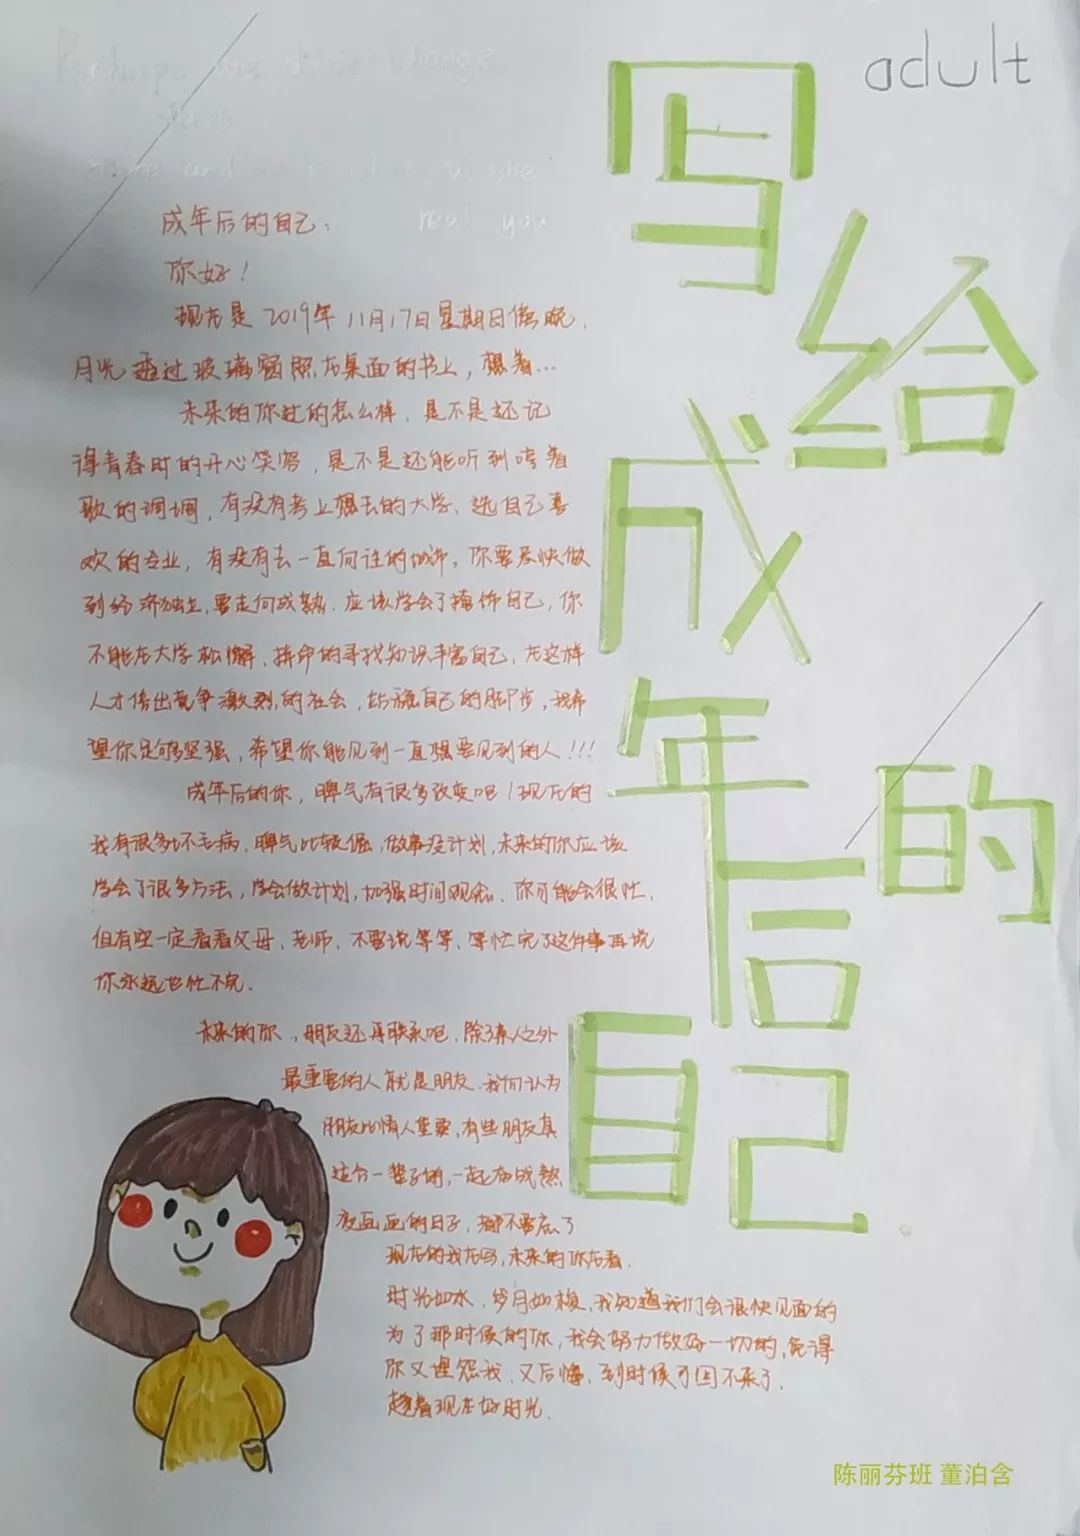 adult
写给成年后的自己
real you
成年后的自己：
你好！
现在是2019年11月17日星期日傍晚，
月光透过玻璃窗照在桌面的书上，想着…
未来的你过的怎么样，是不是还记
得青春时的开心笑容，是不是还能听到哼着
歌的调调，有没有考上想去的大学、选自己喜
欢的专业，有没有去一直向往的城市，你要尽快做
到经济独立，要走向成熟．应该学会了掩饰自己，你
不能在大学松懈，拼命的寻找知识丰富自己，在这样
人才倍出竞争激烈的社会，站稳自己的脚步，我希
望你足够坚强，希望你能见到一直想要见到的人！！！
成年后的你，脾气有很多改变吧！现在的
我有很多坏毛病，脾气比较倔，做事没计划，未来的你应该
学会了很多方法，学会做计划，加强时间观念．你可能会很忙，
但有空一定看看父母、老师，不要说等等，等忙完了这件事再说
你永远也忙不完．
未来的你，朋友还再联系吧，除了亲人之外
最重要的人就是朋友．我们认为
朋友比情人重要，有些朋友真
一辈子的，一起
的日子，都不要忘了
现在的我在写，未来的你在看．
时光如水，岁月如梭，我知道我们会很快见面的
为了那时候的你，我会努力做好一切的，免得
你又埋怨我，又后悔，到时候可回不来了．
趁着现在好时光．
陈丽芬班 董泊含